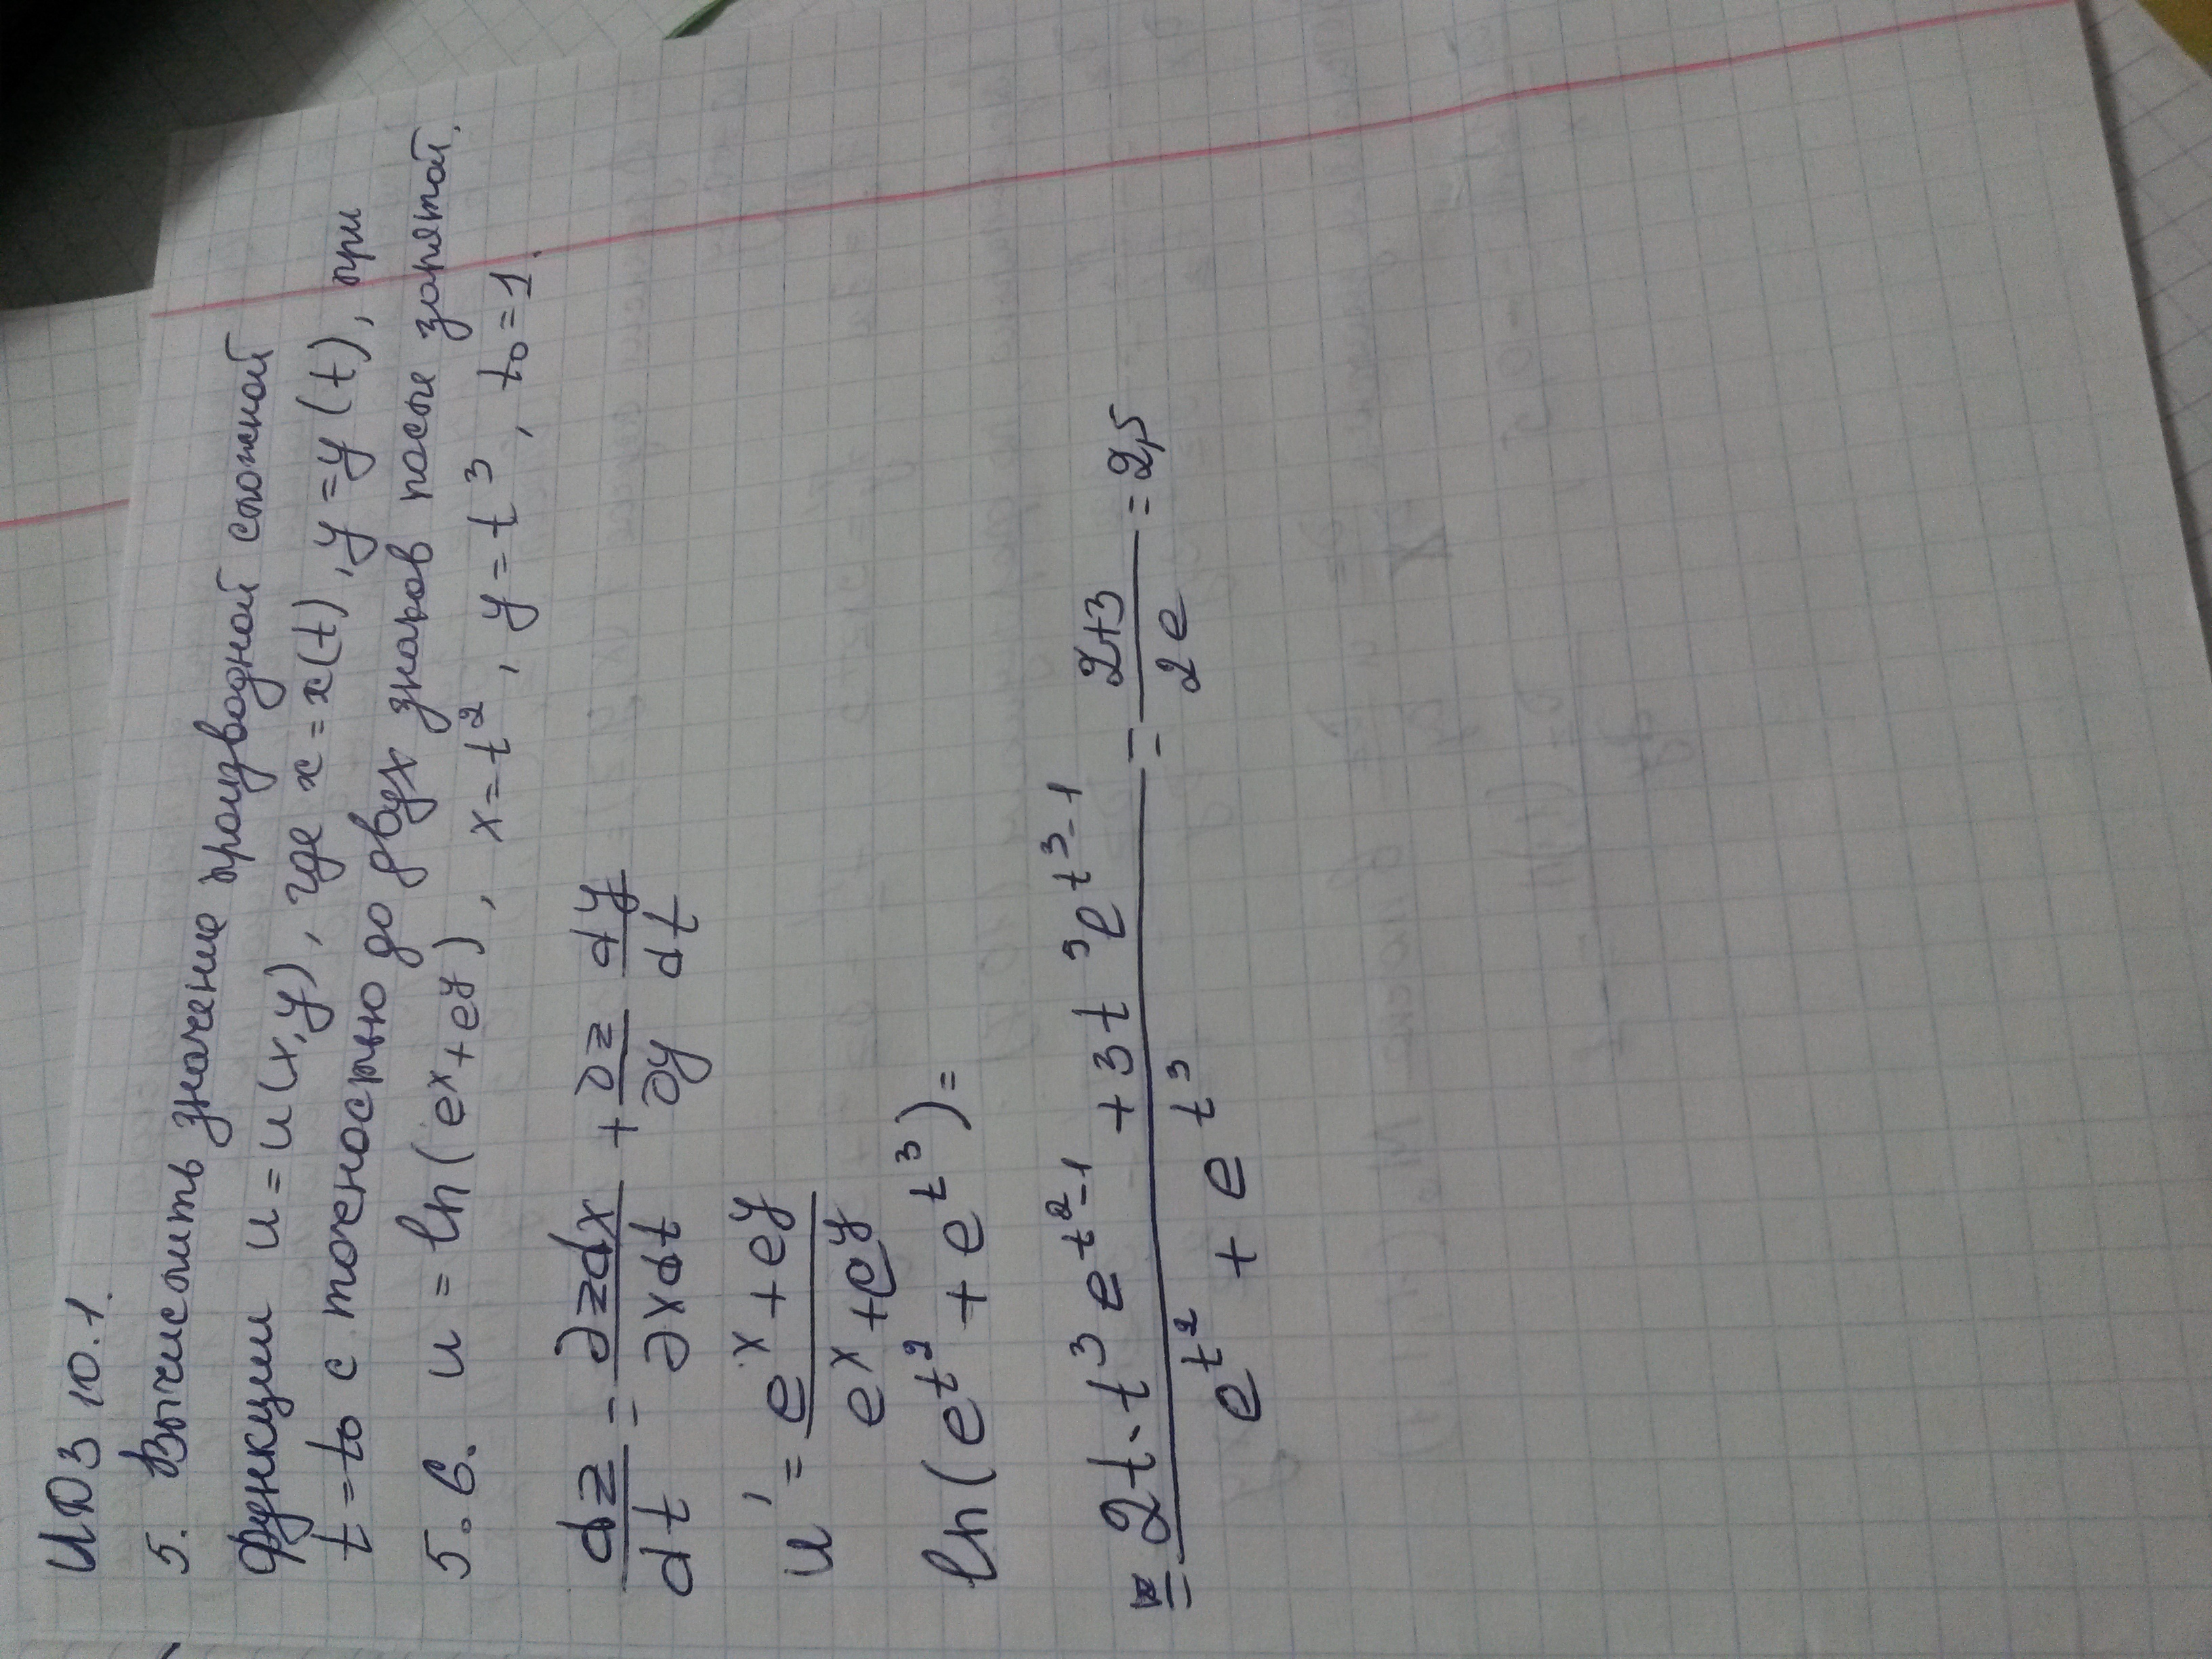 ИДЗ 10.1.
5. Вычислить значение производной сложной
функции u = u(x,y), где x = x(t), y = y(t), при
t = t₀ с точностью до двух знаков после запятой.
5.6. u = ln(eˣ + eʸ), x = t², y = t³, t₀ = 1.
dz/dt = ∂z dx/∂x dt + ∂z/∂y dy/dt
u' = (eˣ + eʸ)/(eˣ + eʸ)
ln(e^t² + e^t³) =
= (2t · t³ e^(t²-1) + 3t ⁵e^(t³-1))/(e^t² + e^t³) = (2+3)/(2e) = 2,5